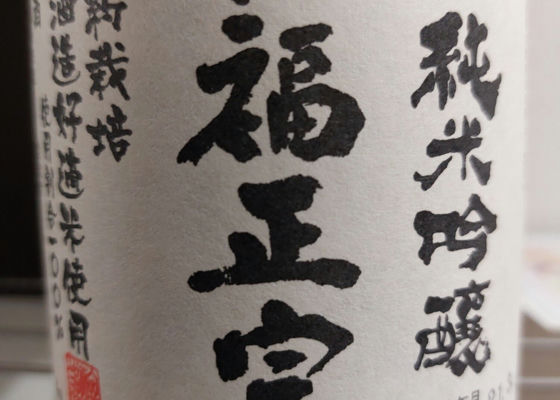 純米吟醸
福正宗
栽培
酒造好適米使用
使用割合100%